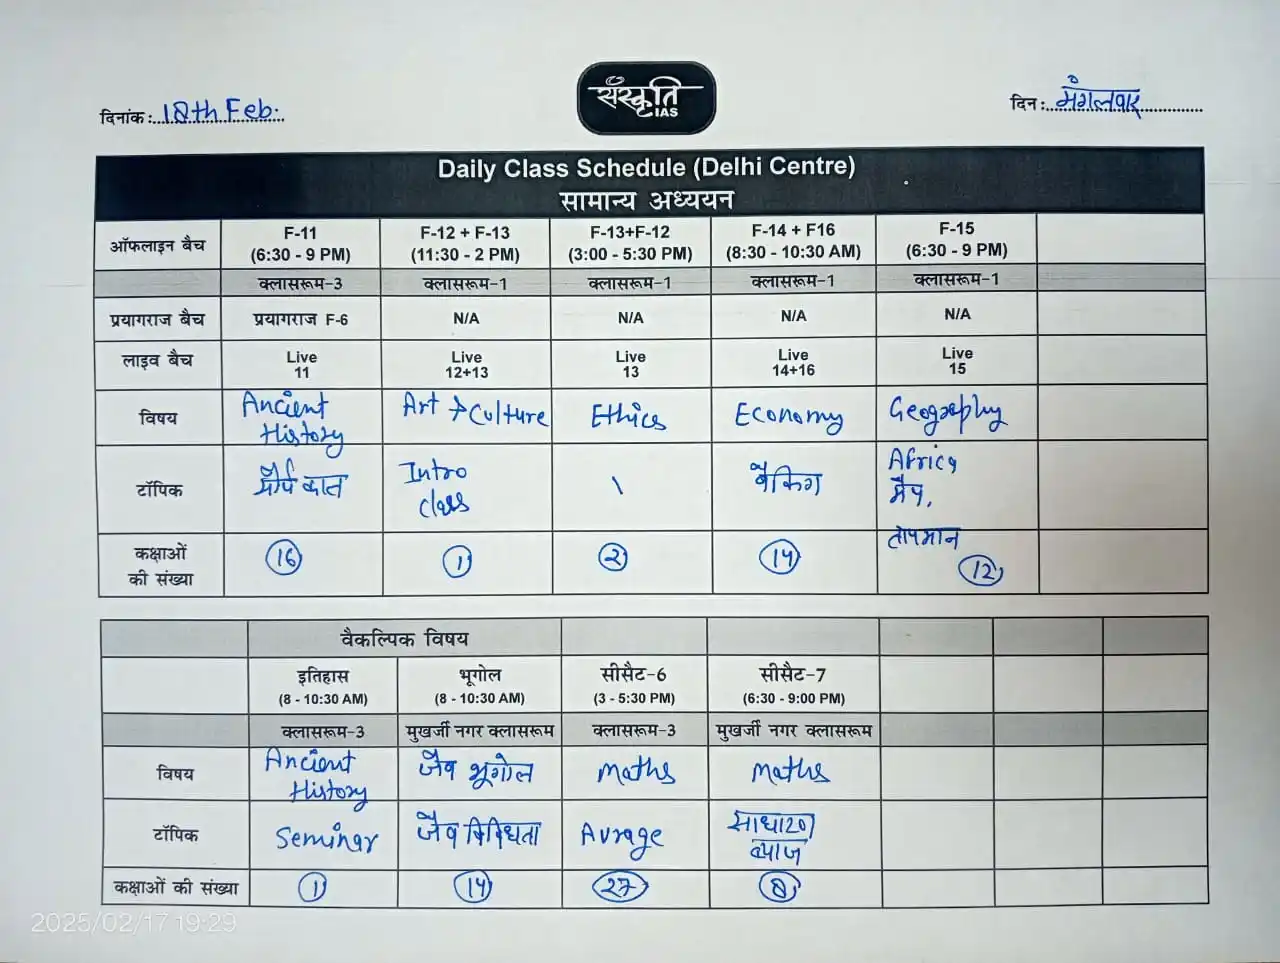 दिनांक: 18th Feb.
संस्कृति
IAS
दिन: मंगलवार
Daily Class Schedule (Delhi Centre)
सामान्य अध्ययन
ऑफलाइन बैच F-11 (6:30 - 9 PM) F-12 + F-13 (11:30 - 2 PM) F-13+F-12 (3:00 - 5:30 PM) F-14 + F16 (8:30 - 10:30 AM) F-15 (6:30 - 9 PM)
क्लासरूम-3 क्लासरूम-1 क्लासरूम-1 क्लासरूम-1 क्लासरूम-1
प्रयागराज बैच प्रयागराज F-6 N/A N/A N/A N/A
लाइव बैच Live 11 Live 12+13 Live 13 Live 14+16 Live 15
विषय Ancient History Art & Culture Ethics Economy Geography
टॉपिक मौर्य काल Intro class \ बैंकिंग Africa मैप, तापमान
कक्षाओं की संख्या 16 1 2 14 12
वैकल्पिक विषय
इतिहास (8 - 10:30 AM) भूगोल (8 - 10:30 AM) सीसैट-6 (3 - 5:30 PM) सीसैट-7 (6:30 - 9:00 PM)
क्लासरूम-3 मुखर्जी नगर क्लासरूम क्लासरूम-3 मुखर्जी नगर क्लासरूम
विषय Ancient History जैव भूगोल Maths Maths
टॉपिक Seminar जैव विविधता Avrage साधारण ब्याज
कक्षाओं की संख्या 1 14 27 8
2025/02/17 19:29